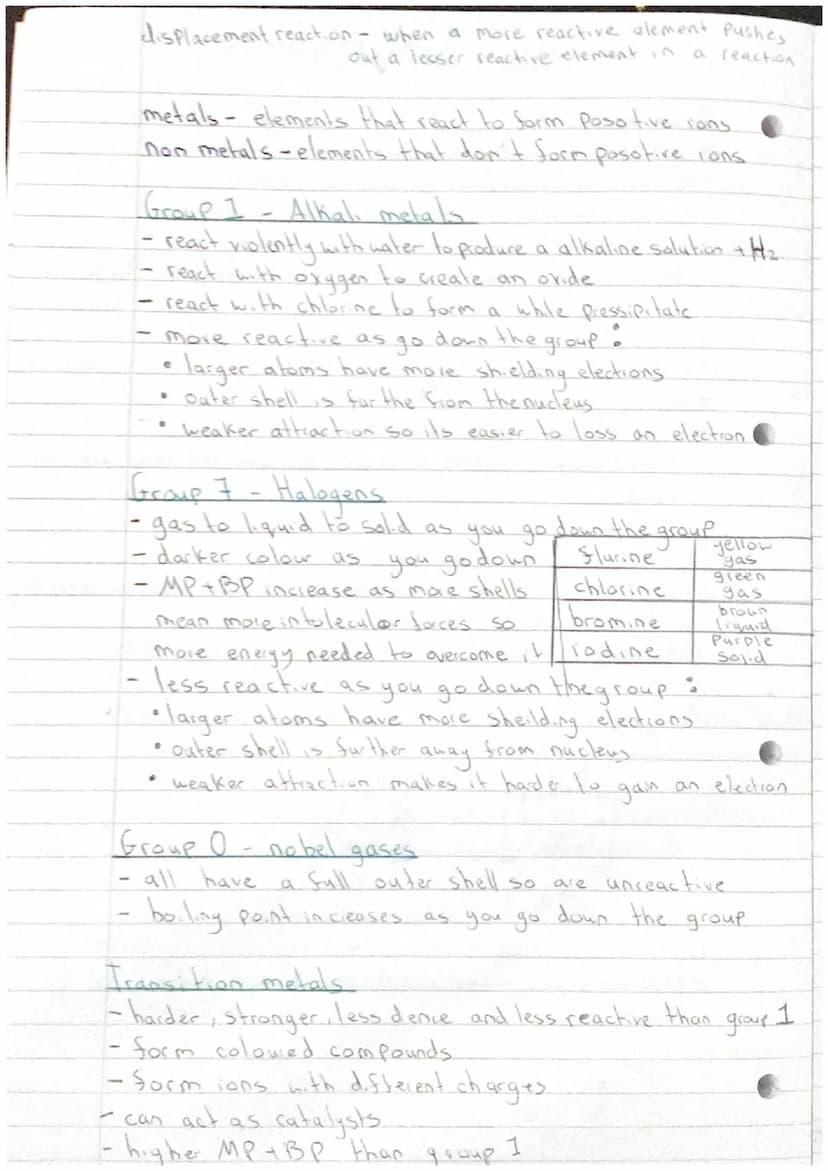 displacement reaction - when a more reactive element pushes
out a lesser reactive element in a reaction
metals - elements that react to form posotive ions
non metals - elements that don't form posotive ions
Group 1 - Alkali metals
- react violently with water to produce a alkaline solution + H₂
- react with oxygen to create an oxide
- react with chlorine to form a white pressipitate
- more reactive as go down the group :
• larger atoms have more shielding elections
• outer shell is further from the nucleus
• weaker attraction so its easier to loss an electron
Group 7 - Halogens
- gas to liquid to solid as you go down the group
- darker colour as you go down
- MP + BP increase as more shells
mean more intolecular forces so
more energy needed to overcome it
flurine yellow gas
chlorine green gas
bromine brown liquid
iodine purple solid
- less reactive as you go down the group :
• larger atoms have more sheilding elections
• outer shell is further away from nucleus
• weaker attraction makes it harder to gain an election
Group 0 - nobel gases
- all have a full outer shell so are unreactive
- boiling point increases as you go down the group
Transition metals
- harder, stronger, less dence and less reactive than group 1
- form coloured compounds
- form ions with different charges
- can act as catalysts
- higher MP + BP than group 1